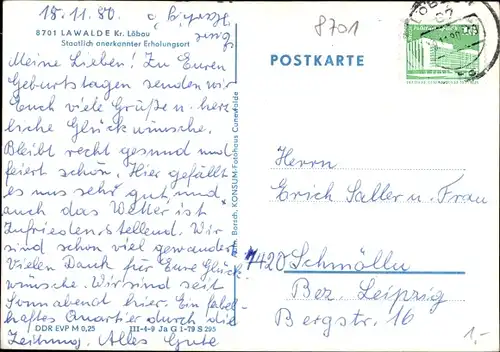 18.11.80
8701
8701 LAWALDE Kr. Löbau
Staatlich anerkannter Erholungsort
Meine Lieben! Zu Euren
Geburtstagen senden wir
Euch viele Grüße u. herz-
liche Glückwünsche.
Bleibt recht gesund und
feiert schön. Hier gefällt
es uns sehr gut, und
auch das Wetter ist
zufriedenstellend. Wir
sind schon viel gewandert.
Vielen Dank für Eure Glück-
wünsche. Wir sind seit
Sonnabend hier. Ein fabel-
haftes Quartier durch die
Zeitung. Alles Gute
DDR EVP M 0,25 III-4-9 Ja G 1-79 S 295
Barsch, KONSUM-Fotohaus Cunewalde
POSTKARTE
Herrn
Erich Saller u. Frau
7420 Schmölln
Bez. Leipzig
Bergstr. 16
1,-